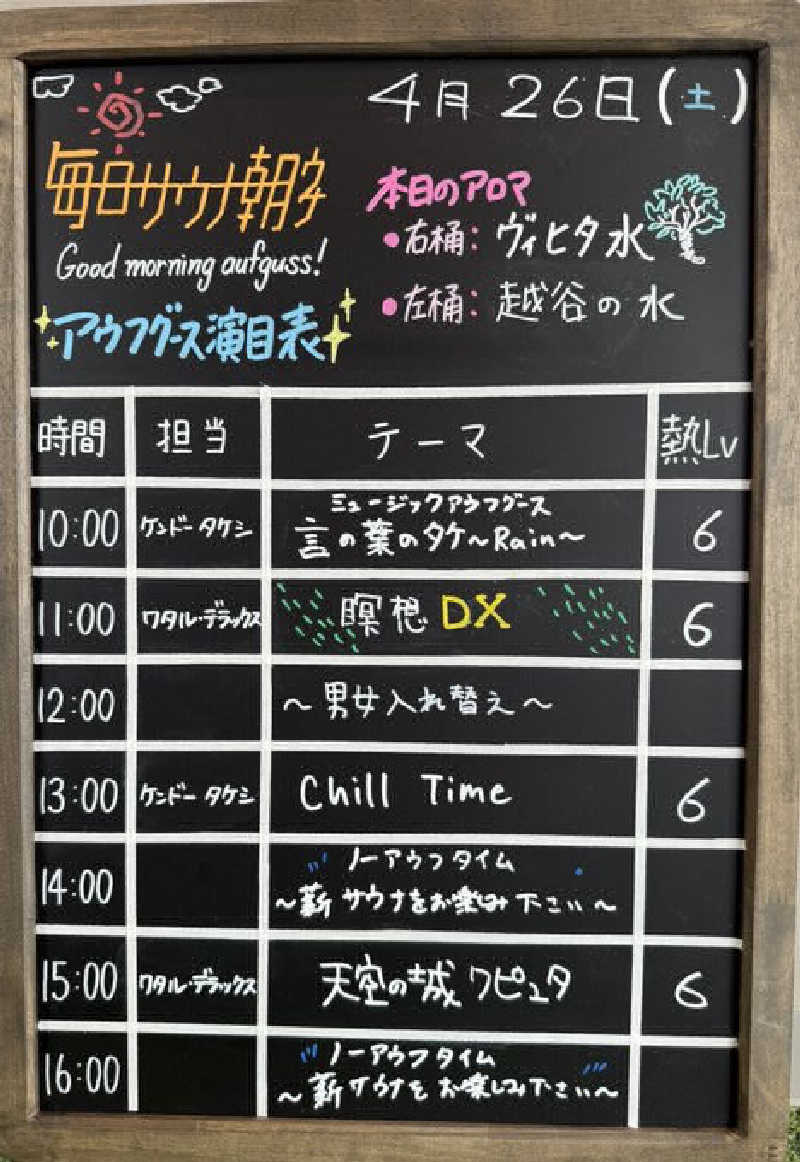 4月 26日(土)
毎日サウナ朝タ
Good morning aufguss!
アウフグース演目表
本日のアロマ
●右桶: ヴィヒタ水
●左桶: 越谷の水
時間 担当 テーマ 熱Lv
10:00 ケンドータケシ ミュージックアウフグース
言の葉のタケ〜Rain〜 6
11:00 ワタル・デラックス 瞑想DX 6
12:00 〜男女入れ替え〜
13:00 ケンドータケシ Chill Time 6
14:00 ノーアウフタイム
〜薪サウナをお楽しみ下さい〜
15:00 ワタル・デラックス 天空の城ワピュタ 6
16:00 ノーアウフタイム
〜薪サウナをお楽しみ下さい〜